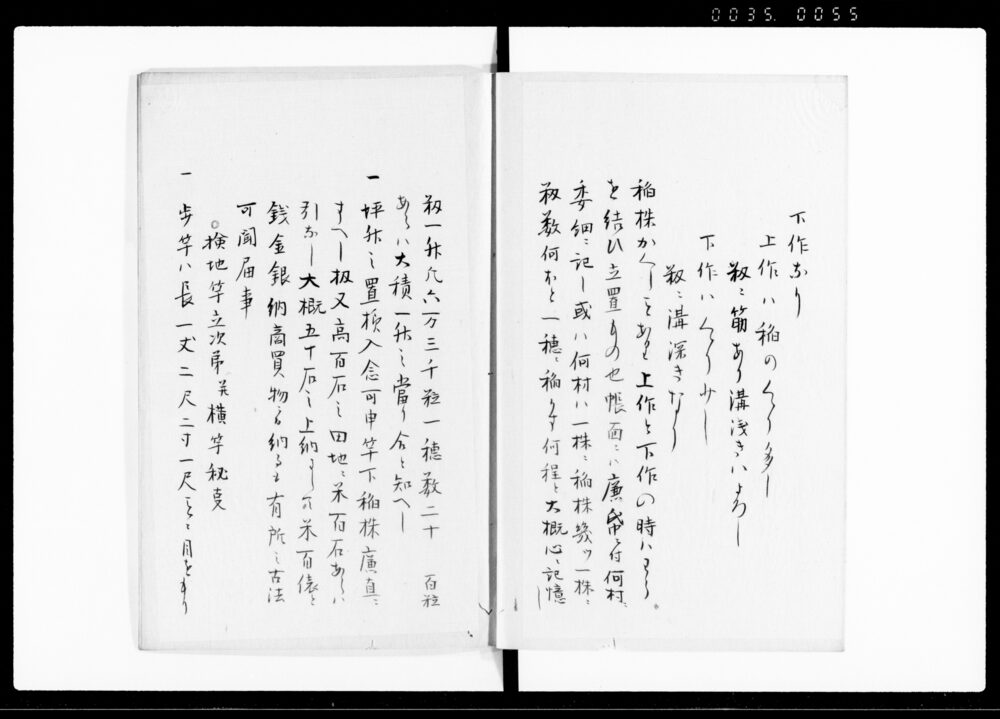 0035. 0055
下作なり
上作ハ稲のくゝり多し
籾ニ筋あり溝浅きハよろし
下作ハくゝり少し
籾ニ溝深きなり
稲株かくしことあれと上作と下作の時ハ
を結ひ立置もの也帳面ニハ廉常ニ付何村ニ
委細ニ記し或ハ何村ハ一株ニ稲株幾ツ一株ニ
籾数何ほと一穂ニ稲何程と大概心ニ記憶し
籾一升凡六万三千粒一穂数二十 百粒
あらハ大積一升之當り合と知へし
一 坪升之置様入念可申竿下稲株廉直ニ
すへし扱又高百石之田地ニ米百石あらハ
引なし大概五十石之上納 米百俵と
銭金銀納商買物ニ而納るも有所之古法
可聞届事
○検地竿立次第并横竿秘事
一 歩竿ハ長一丈二尺二寸一尺ことニ目をもり